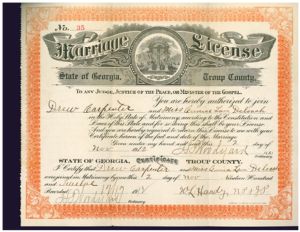 No. 35
Marriage License
State of Georgia, Troup County.
TO ANY JUDGE, JUSTICE OF THE PEACE, OR MINISTER OF THE GOSPEL.
You are hereby authorized to join
Drew Carpenter and Miss Lou Deloach
in the Holy State of Matrimony, according to the Constitution and
Laws of this State, and for so doing this shall be your License.
And you are hereby required to return this License to me with your
Certificate hereon of the fact and date of the Marriage.
Given under my hand and seal this 2 day of
Nov 1912
STATE OF GEORGIA. Certificate TROUP COUNTY.
I Certify that Drew Carpenter and Miss Lou Deloach
were joined in Matrimony by me this 2 day of Nov Nineteen Hundred
and Twelve
Recorded